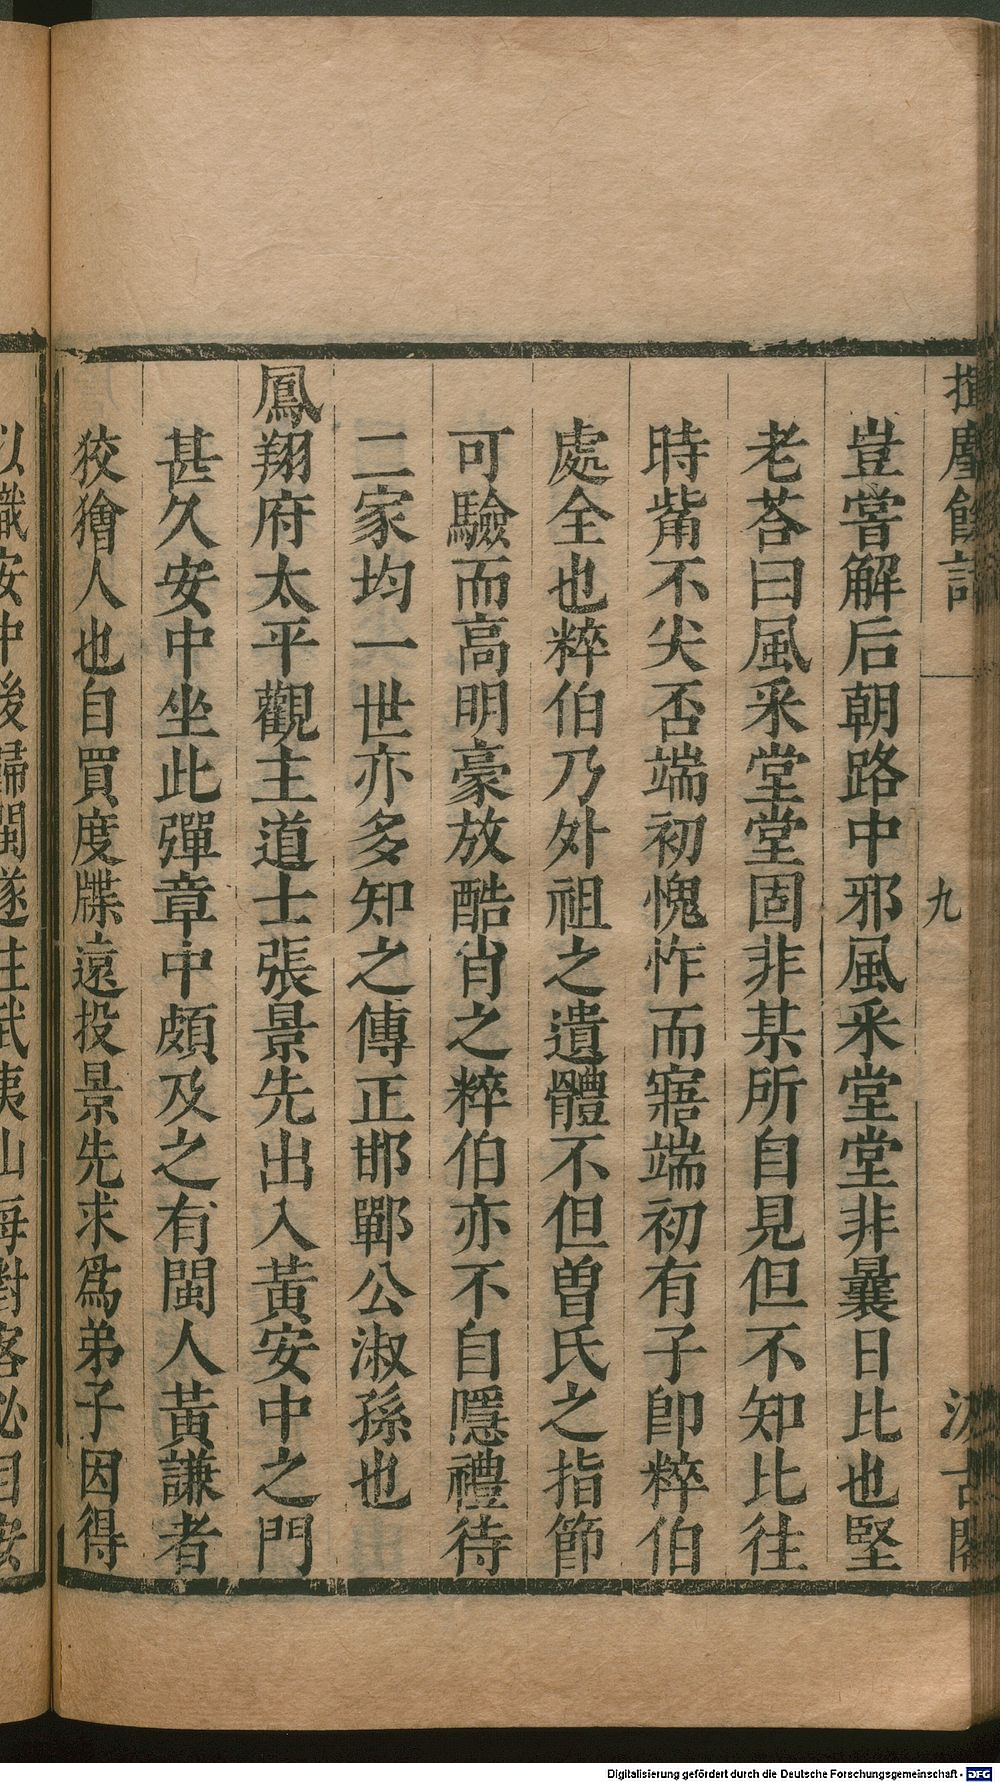 揮麈餘話
九
汲古閣
豈嘗解后朝路中邪風采堂堂非曩日比也堅
老荅曰風采堂堂固非某所自見但不知比往
時觜不尖否端初愧怍而寤端初有子卽粹伯
處全也粹伯乃外祖之遺體不但曾氏之指節
可驗而高明豪放酷肖之粹伯亦不自隱禮待
二家均一世亦多知之傳正邯鄲公淑孫也
鳳翔府太平觀主道士張景先出入黃安中之門
甚久安中坐此彈章中頗及之有閩人黃謙者
狡獪人也自買度牒遠投景先求爲弟子因得
以識安中後歸閩遂往武夷山每對客必目安
Digitalisierung gefördert durch die Deutsche Forschungsgemeinschaft - DFG